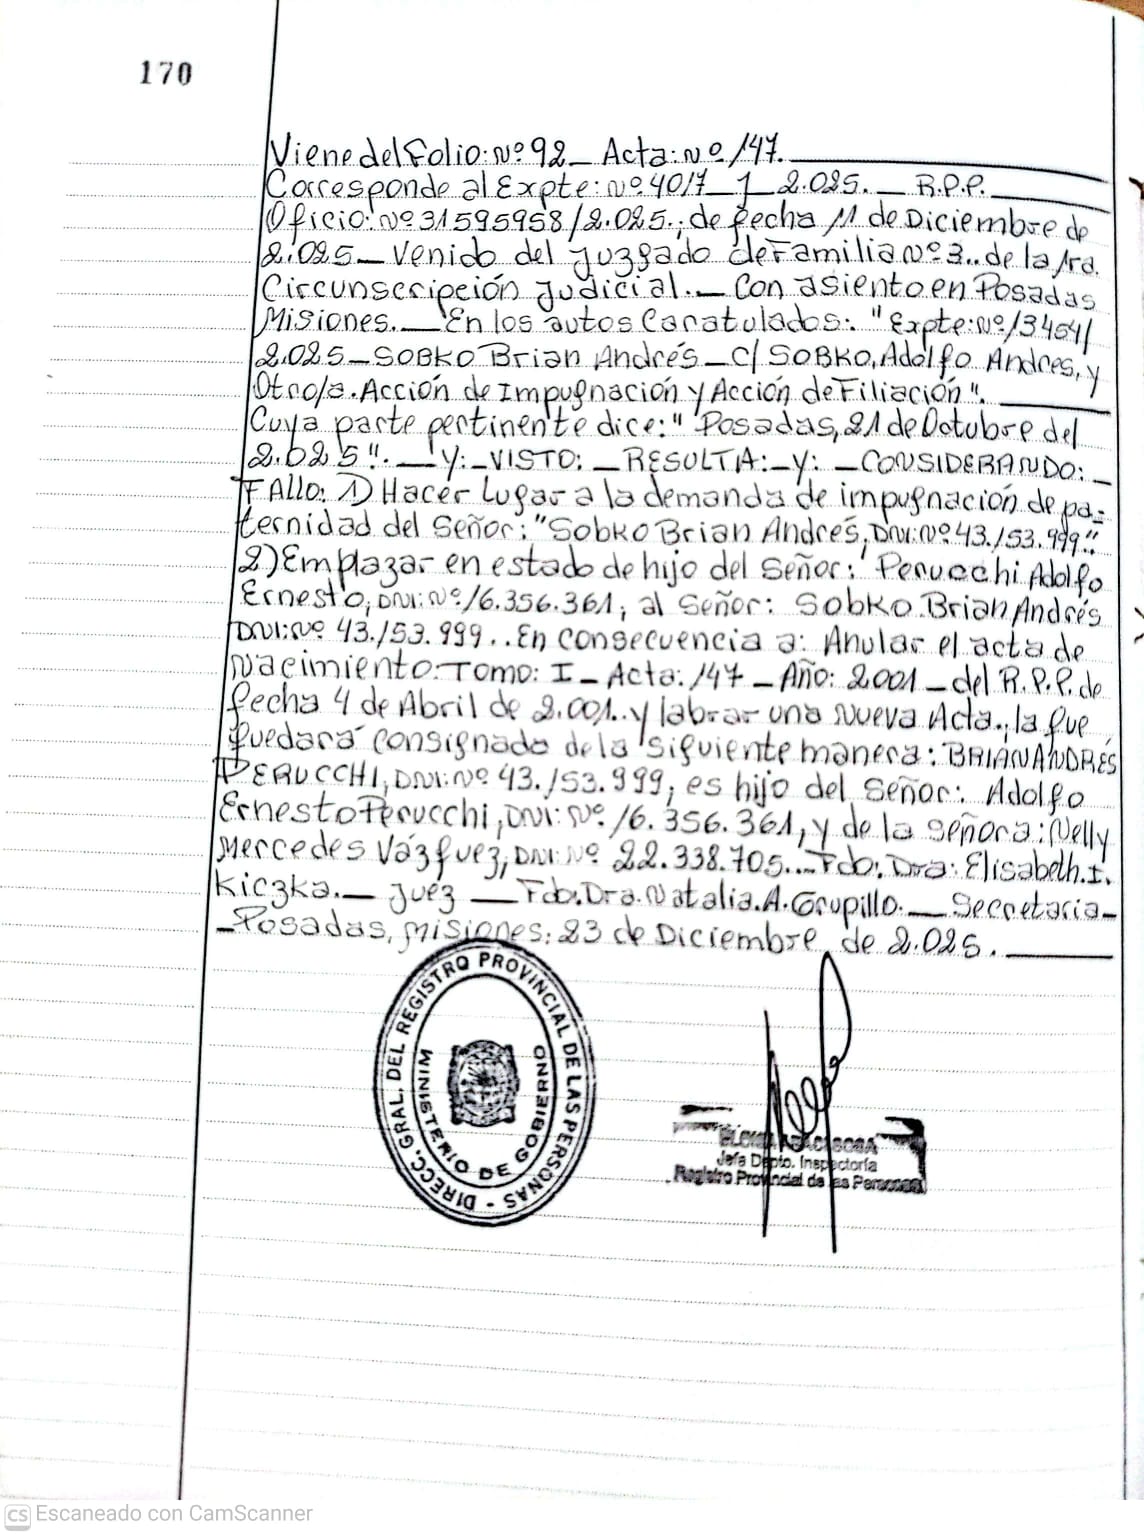 170
Viene del Folio: Nº 92_ Acta: Nº 147.
Corresponde al Expte: Nº 4017_J_2.025._ R.P.P.
Oficio: Nº 31595958/2.025.; de fecha 11 de Diciembre de
2.025_ Venido del Juzgado de Familia Nº 3.. de la 1ra.
Circunscripción Judicial._ Con asiento en Posadas
Misiones.__En los autos Caratulados: "Expte: Nº 13454/
2.025_SOBKO Brian Andrés_C/ SOBKO, Adolfo Andres, y
Otro/a. Acción de Impugnación y Acción de Filiación".
Cuya parte pertinente dice: "Posadas, 21 de Octubre del
2.025". _Y:_VISTO: _RESULTA:_Y: _CONSIDERANDO:_
FALLO: 1) Hacer Lugar a la demanda de impugnación de pa-
ternidad del Señor: "Sobko Brian Andrés, DNI: Nº 43.153.999"
2) Emplazar en estado de hijo del Señor: Perucchi Adolfo
Ernesto, DNI: Nº 16.356.361, al Señor: Sobko Brian Andrés
DNI: Nº 43.153.999.. En consecuencia a: Anular el acta de
Nacimiento: Tomo: I_ Acta: 147 _ Año: 2.001 _ del R.P.P. de
fecha 4 de Abril de 2.001.. y labrar una Nueva Acta., la que
quedará consignada de la siguiente manera: BRIAN ANDRÉS
PERUCCHI, DNI: Nº 43.153.999, es hijo del Señor: Adolfo
Ernesto Perucchi, DNI: Nº 16.356.361, y de la señora: Nelly
Mercedes Vázquez, DNI: Nº 22.338.705._ Fdo: Dra: Elisabeth. I.
Kiczka._ Juez _ Fdo. Dra. Natalia. A. Grupillo. _ Secretaria_
_Posadas, Misiones: 23 de Diciembre de 2.025.
DIRECC. GRAL. DEL REGISTRO PROVINCIAL DE LAS PERSONAS -
MINISTERIO DE GOBIERNO
SOSA
Jefa Depto. Inspectoría
Registro Provincial de las Personas
CS Escaneado con CamScanner